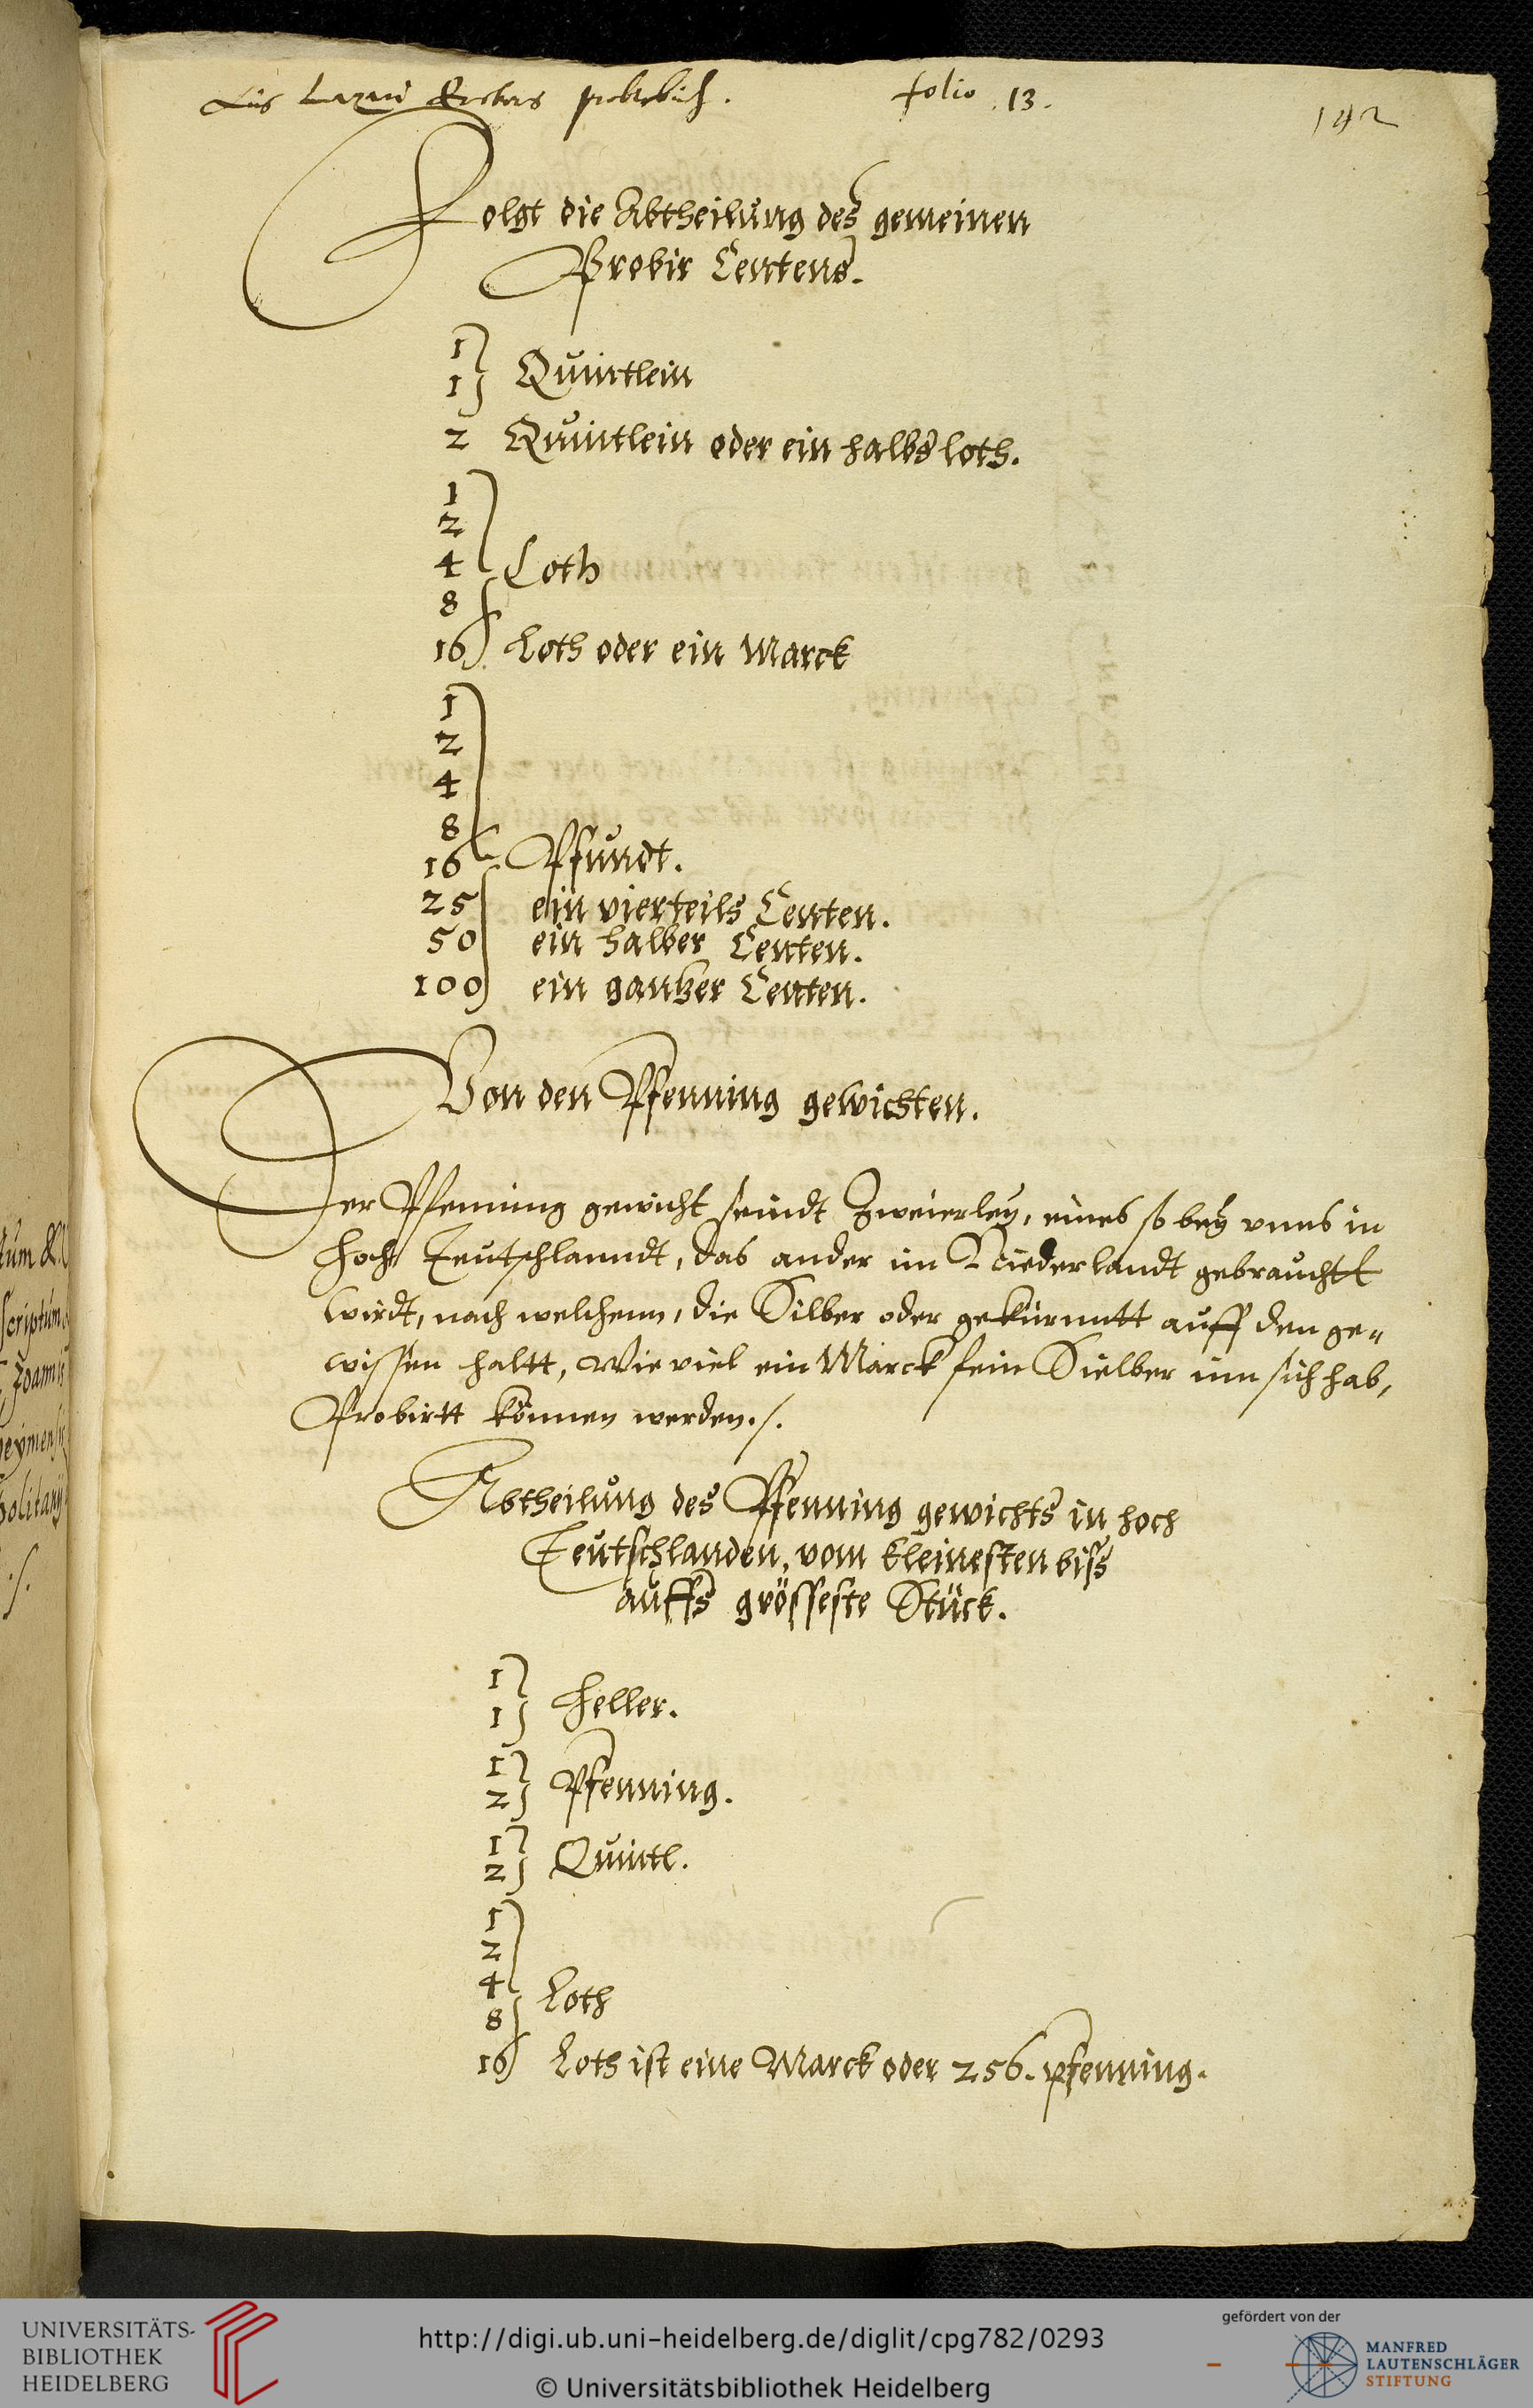 Aus Lazari Erckers probirbuch. folio 13.
142
Folgt die Abtheilung des gemeinen
Probir Centens.
1
1 Quintlein
2 Quintlein oder ein halbs loth.
1
2
4 Loth
8
16 Loth oder ein Marck
1
2
4
8
16 Pfundt.
25 ein vierteils Centen.
50 ein halber Centen.
100 ein gantzer Centen.
Von den Pfenning gewichten.
Der Pfenning gewicht seindt Zweierley, eines so bey vnns in
Hoch Teutschlanndt, das ander im Niederlandt gebrauchtt
wirdt, nach welchenn, die Silber oder gekürnntt auff den ge„
wissen haltt, Wie viel ein Marck fein Sielber inn sich hab,
Probirtt können werden./.
Abtheilung des Pfenning gewichts in hoch
Teutschlanden, vom kleinesten biss
auffs grösseste Stück.
1
1 Heller.
1
2 Pfenning.
1
2 Quintl.
1
2
4
8 Loth
16 Loth ist eine Marck oder 256. pfenning.
UNIVERSITÄTS-
BIBLIOTHEK
HEIDELBERG
http://digi.ub.uni-heidelberg.de/diglit/cpg782/0293
© Universitätsbibliothek Heidelberg
gefördert von der
MANFRED
LAUTENSCHLÄGER
STIFTUNG